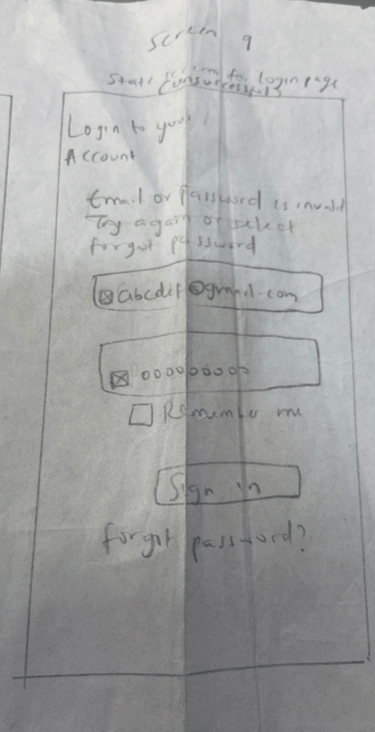 Screen 9
State screen for login page
(unsuccessful)
Login to your
Account
Email or Password is invalid
Try again or select
forgot password
abcdef@gmail.com
Remember me
Sign in
forgot password?